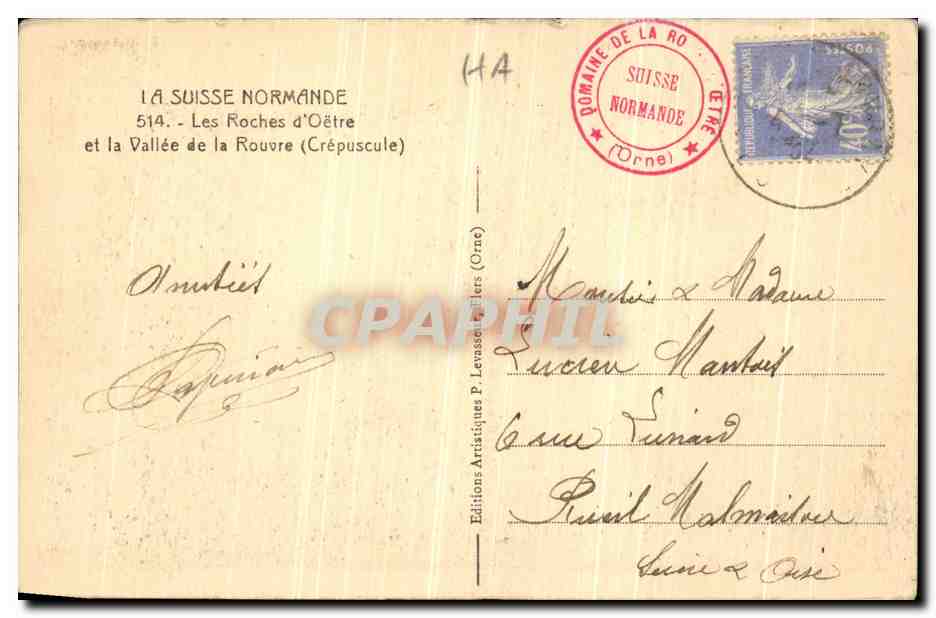 HA
LA SUISSE NORMANDE
514. - Les Roches d'Oëtre
et la Vallée de la Rouvre (Crépuscule)
DOMAINE DE LA RO ŒTRE
SUISSE
NORMANDE
(Orne)
POSTES
REPUBLIQUE FRANÇAISE
40c
Amitiés
Editions Artistiques P. Levasseur, Flers (Orne)
CPAPHIL
Monsieur & Madame
Lucien Mantois
6 rue
Rueil Malmaison
Seine & Oise